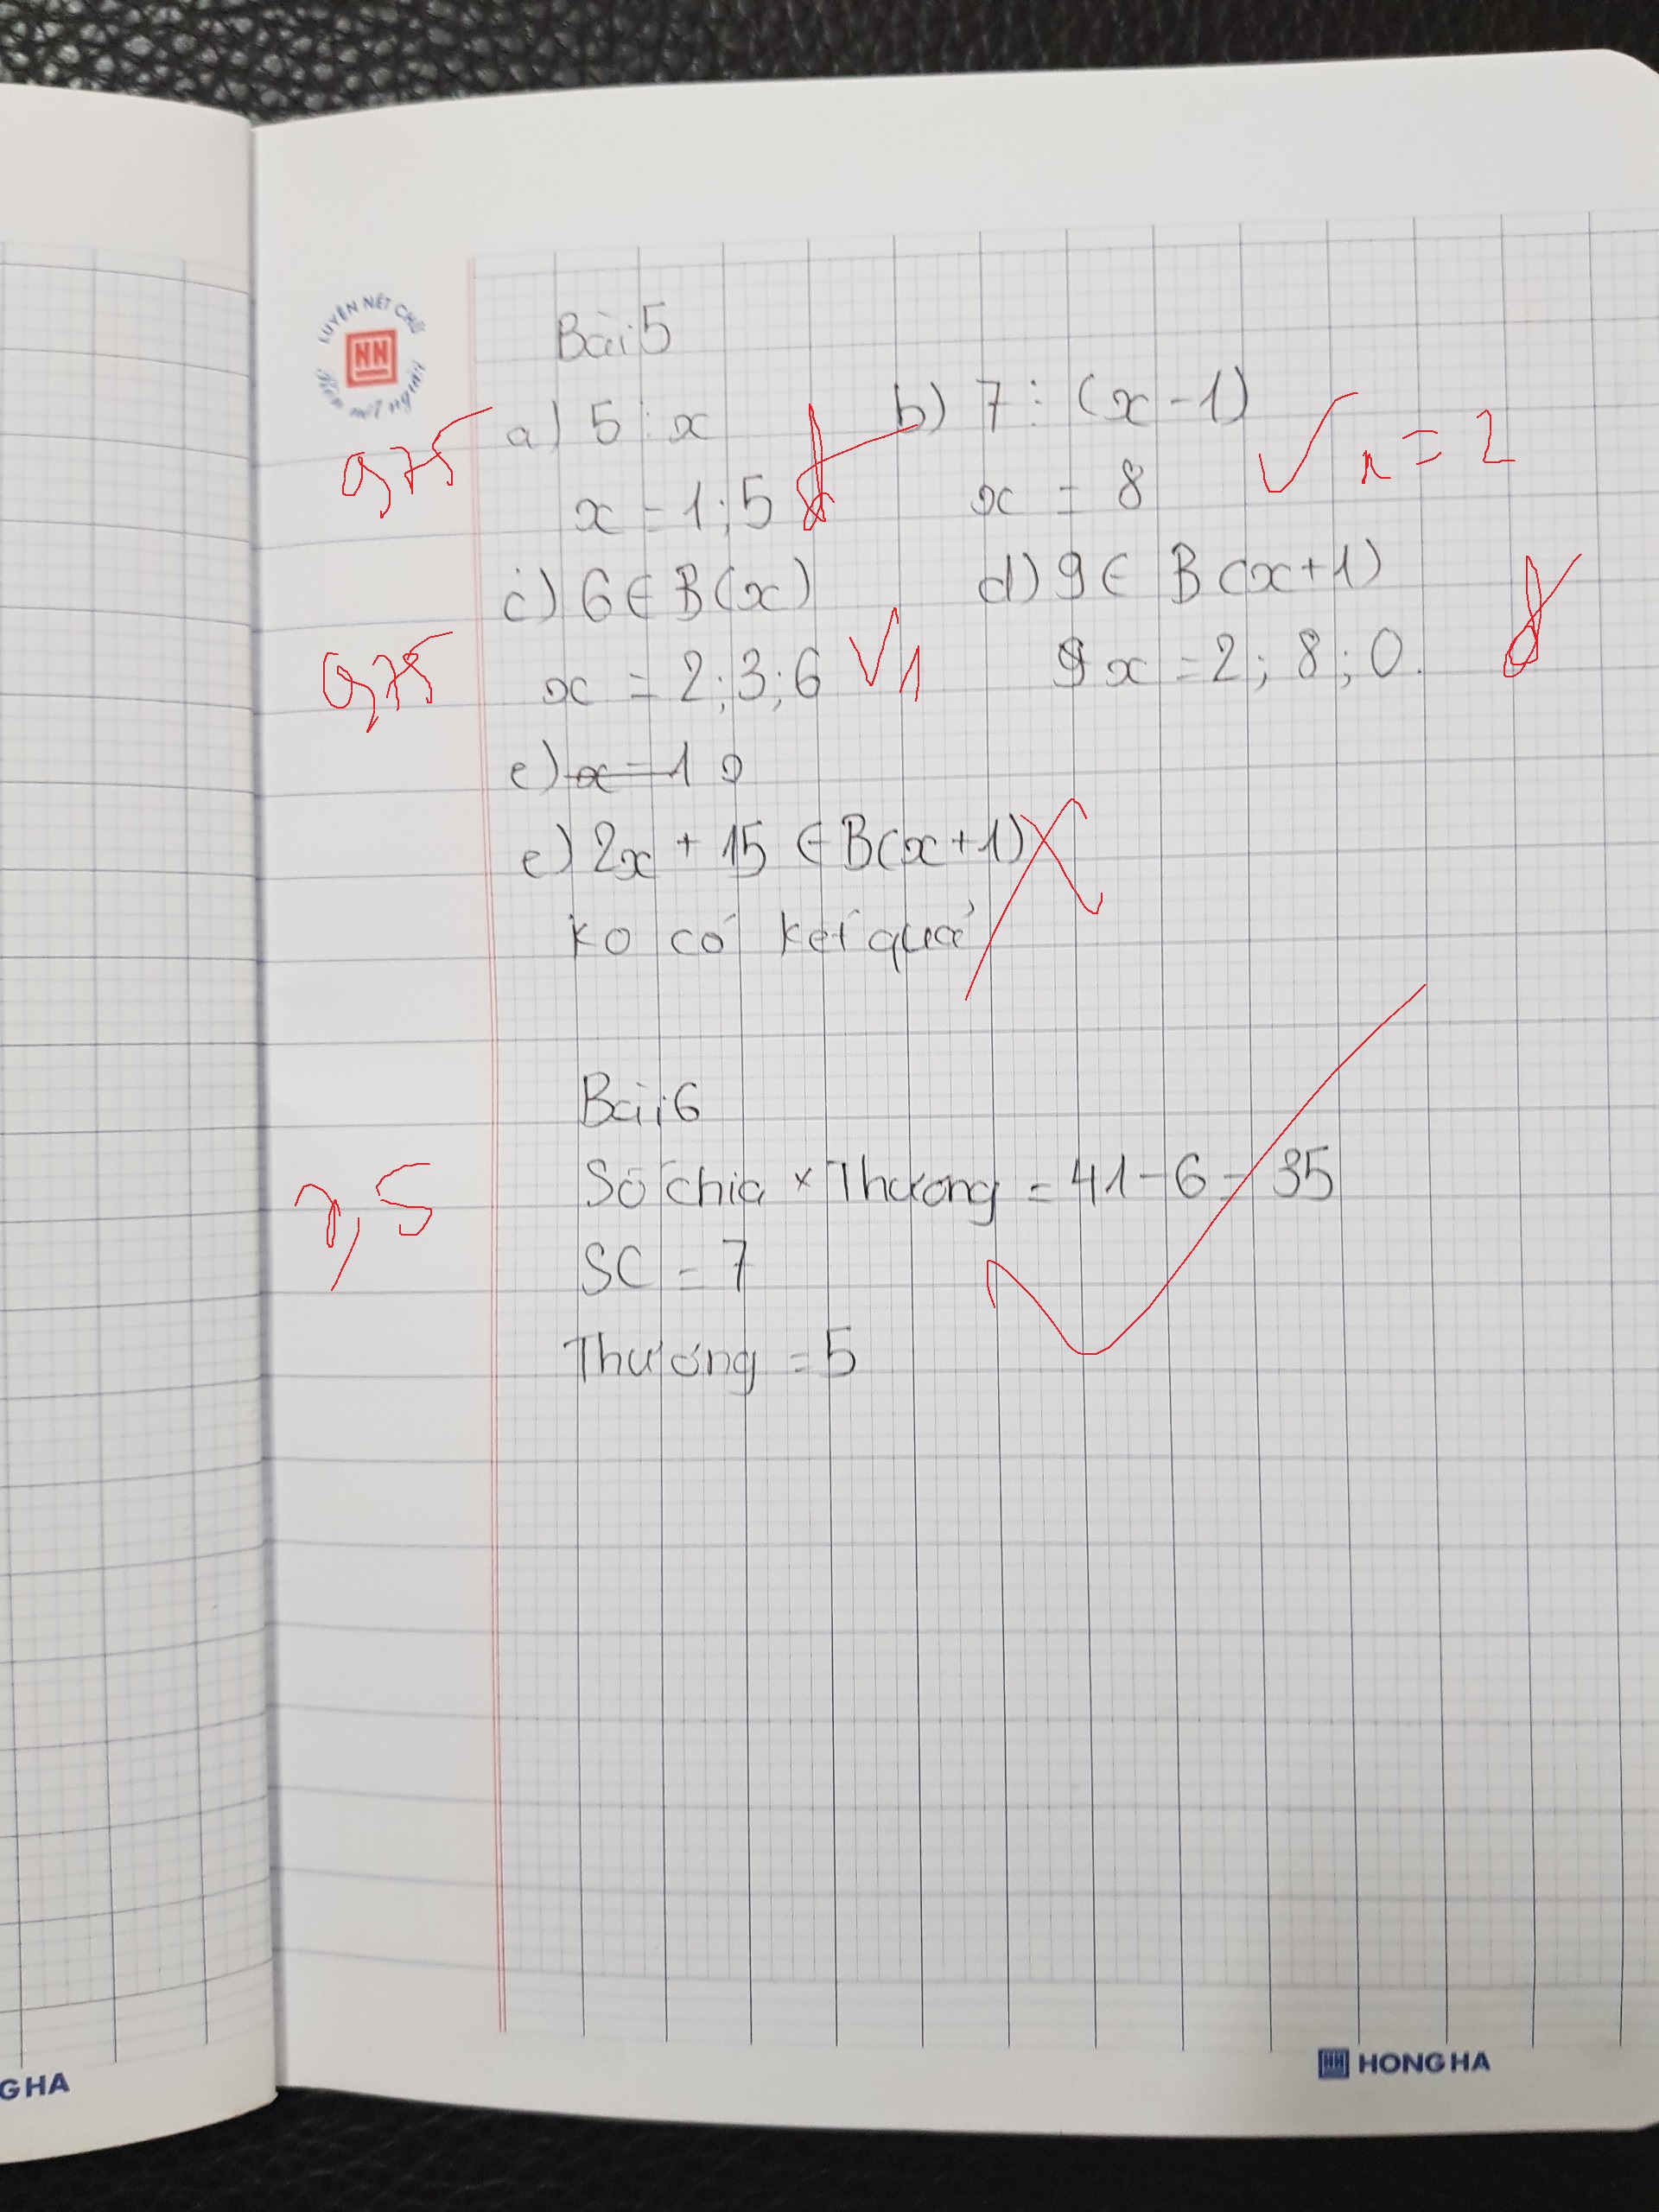 LUYỆN NÉT CHỮ
HH
Rèn nết người
Bài 5
a) 5 : x b) 7 : (x - 1)
0,75
x = 1 ; 5 đ x = 8 x = 2
c) 6 ∈ B(x) d) 9 ∈ B (x+1)
0,75 x = 2 ; 3 ; 6 1 x = 2 ; 8 ; 0. đ
e) x = 1
e) 2x + 15 ∈ B(x+1)
ko có kết quả
Bài 6
Số chia × Thương = 41 - 6 = 35
SC = 7
Thương = 5
HH HONG HA
GHA